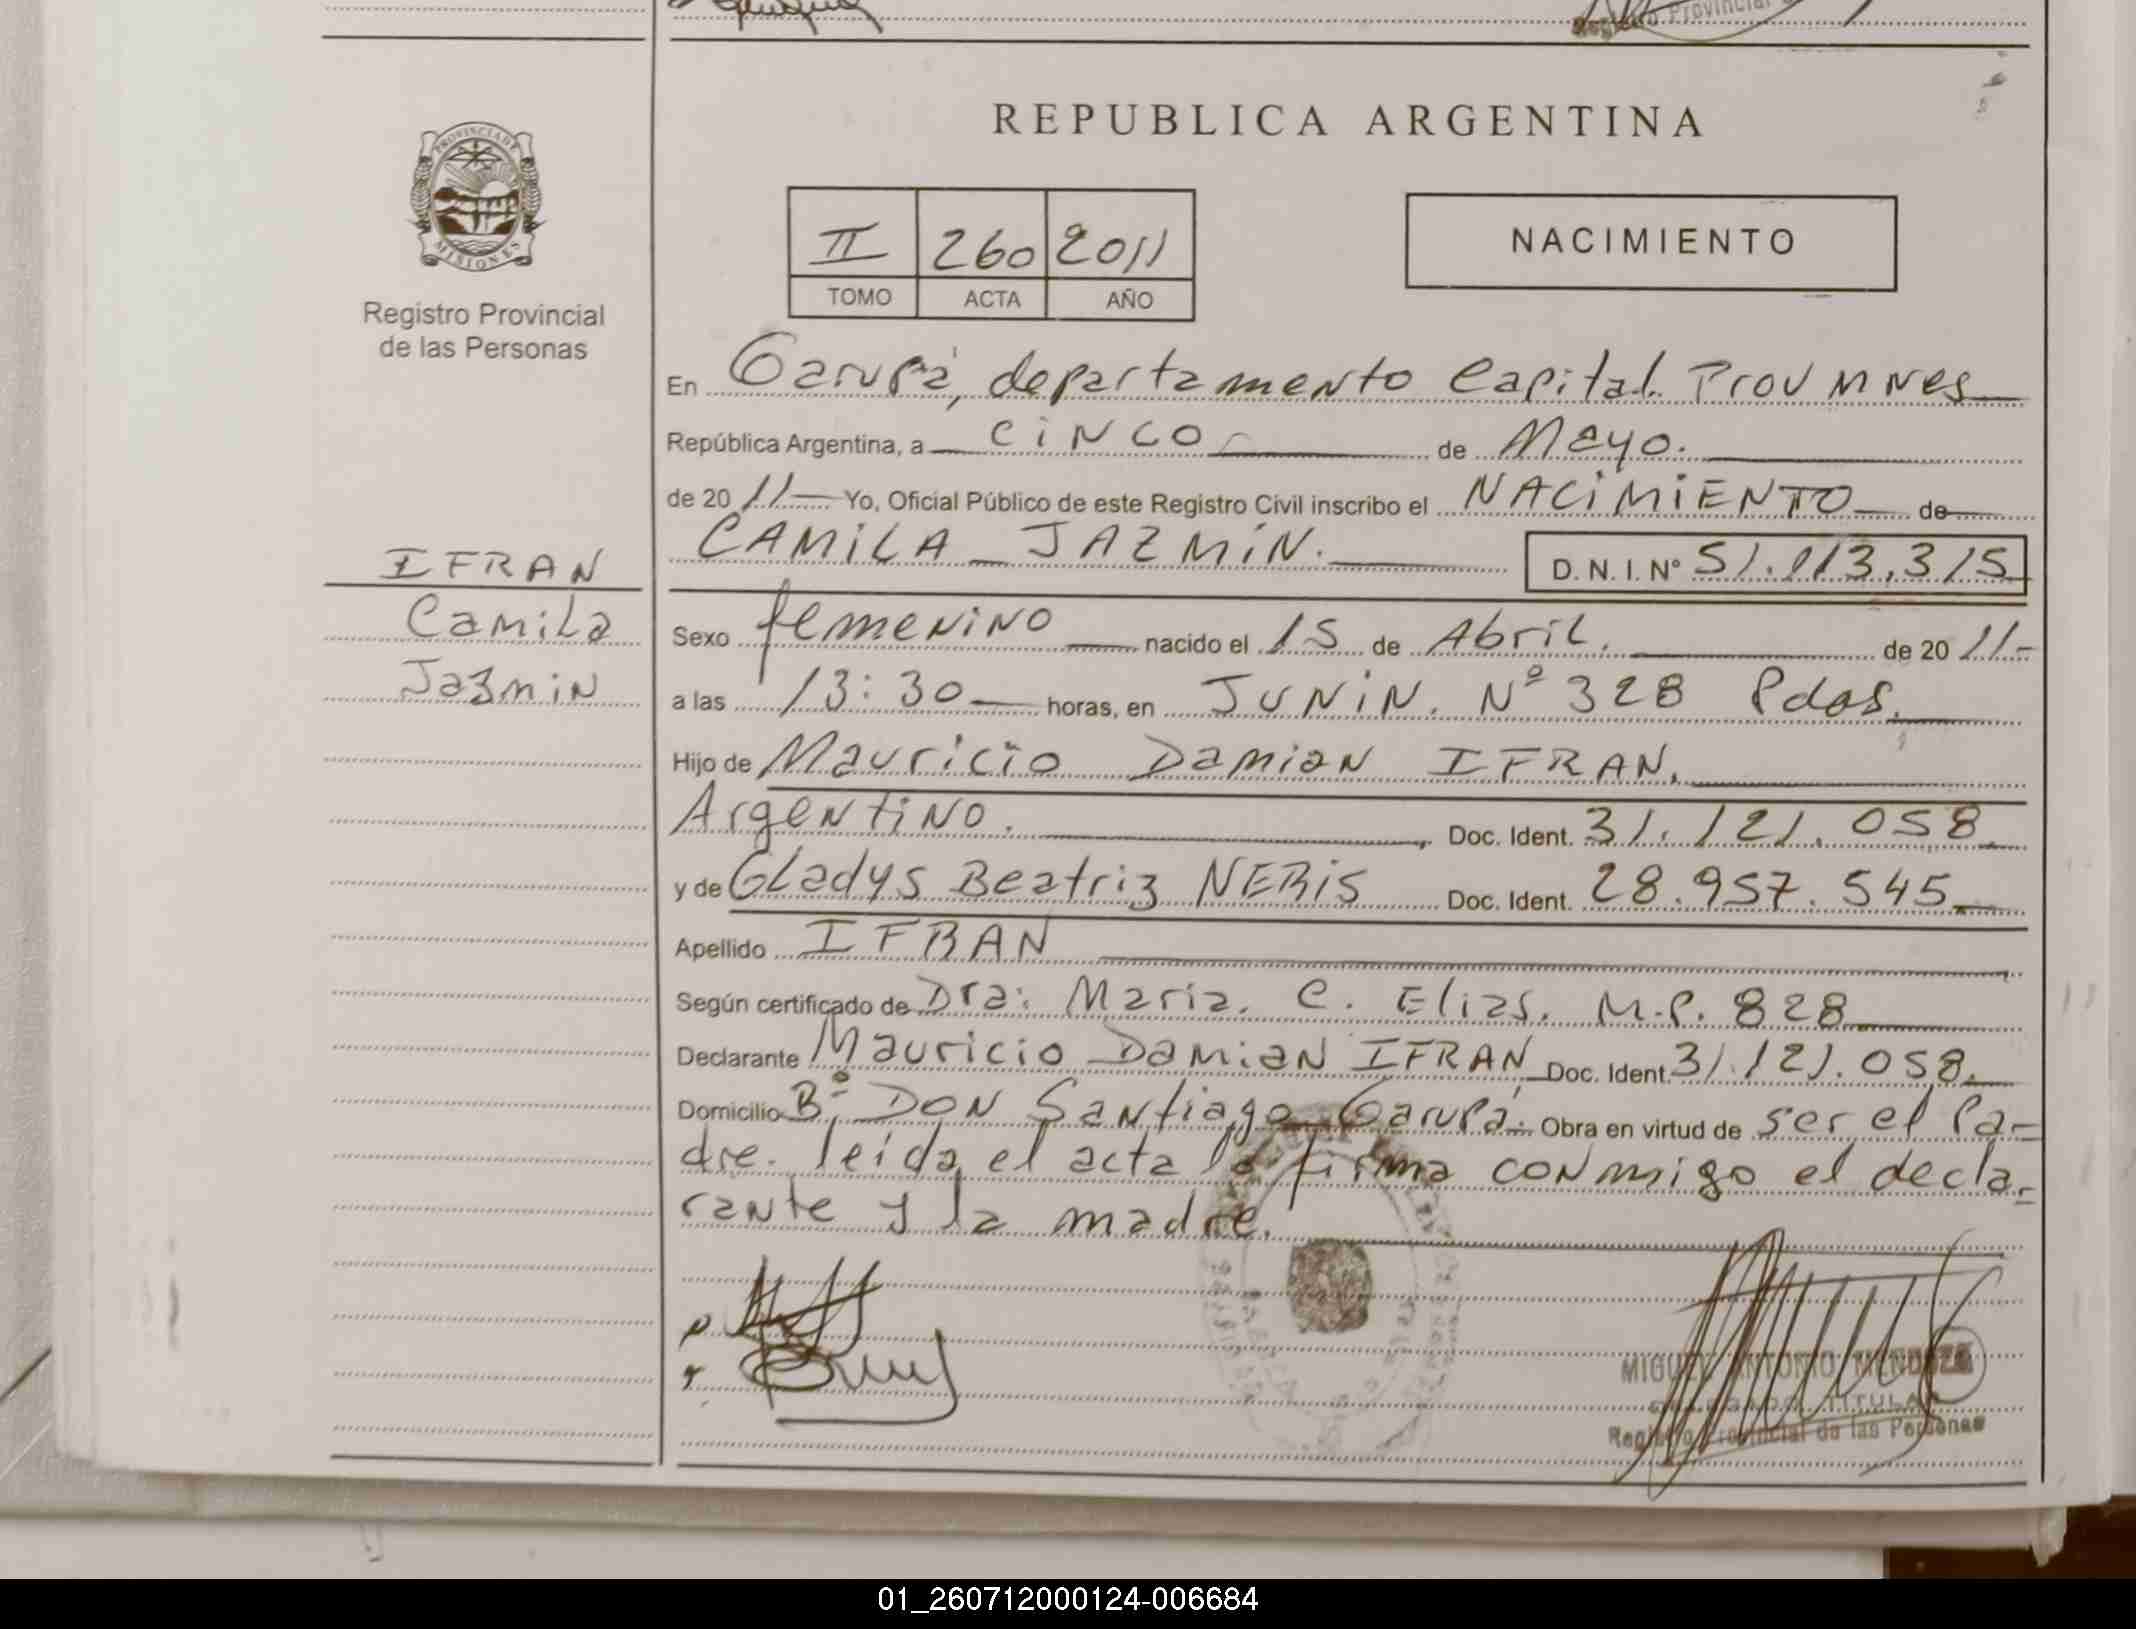 Registro Provincial
PROVINCIA DE
MISIONES
Registro Provincial
de las Personas
IFRAN
Camila
Jazmin
REPUBLICA ARGENTINA
II 260 2011
TOMO ACTA AÑO
NACIMIENTO
En Garupá, departamento Capital. Prov Mnes
República Argentina, a CINCO de Mayo.
de 20 11 Yo, Oficial Público de este Registro Civil inscribo el NACIMIENTO de
CAMILA JAZMIN. D. N. I. Nº 51.113.315
Sexo femenino nacido el 15 de Abril. de 20 11-
a las 13:30 horas, en JUNIN. Nº 328 Pdas.
Hijo de Mauricio Damian IFRAN.
Argentino. Doc. Ident. 31.121.058
y de Gladys Beatriz NERIS Doc. Ident. 28.957.545
Apellido IFRAN
Según certificado de Dra: Maria. C. Elias. M.P. 828
Declarante Mauricio Damian IFRAN Doc. Ident. 31.121.058.
Domicilio Bº DON Santiago Garupá. Obra en virtud de ser el Pa-
dre. leida el acta la firma conmigo el decla-
rante y la madre.
MIGUEL ANTONIO MENDOZA
DELEGADO TITULAR
Registro Provincial de las Personas
01_260712000124-006684